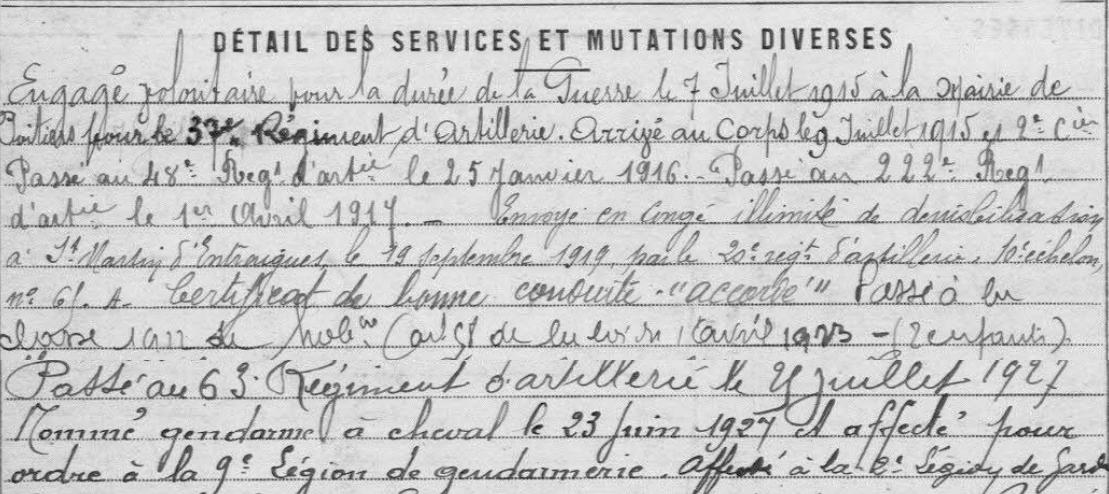 DÉTAIL DES SERVICES ET MUTATIONS DIVERSES
Engagé volontaire pour la durée de la Guerre le 7 Juillet 1915 à la Mairie de
Poitiers pour le 37e Régiment d'Artillerie. Arrivé au Corps le 9 Juillet 1915 et 2e Cier
Passé au 48e Regt d'artie le 25 Janvier 1916. - Passé au 222e Regt
d'artie le 1er Avril 1917. - Envoyé en congé illimité de démobilisation
à St Martin d'Entraigues, le 19 septembre 1919, par le 20e régt d'artillerie. 10e échelon,
no 61. A. Certificat de bonne conduite "accordé" Passé à la
classe 1912 de mobon (art 58 de la loi du 1 avril 1923 - (2 enfants).
Passé au 63e Régiment d'artillerie le juillet 1927
Nommé gendarme à cheval le 23 juin 1927 et affecté pour
ordre à la 9e Légion de gendarmerie. Affecté à la 2e Légion de Gard